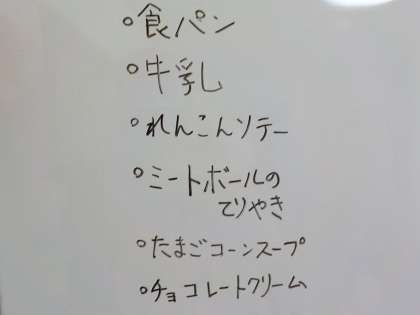 ○食パン
○牛乳
○れんこんソテー
○ミートボールの
てりやき
○たまごコーンスープ
○チョコレートクリーム